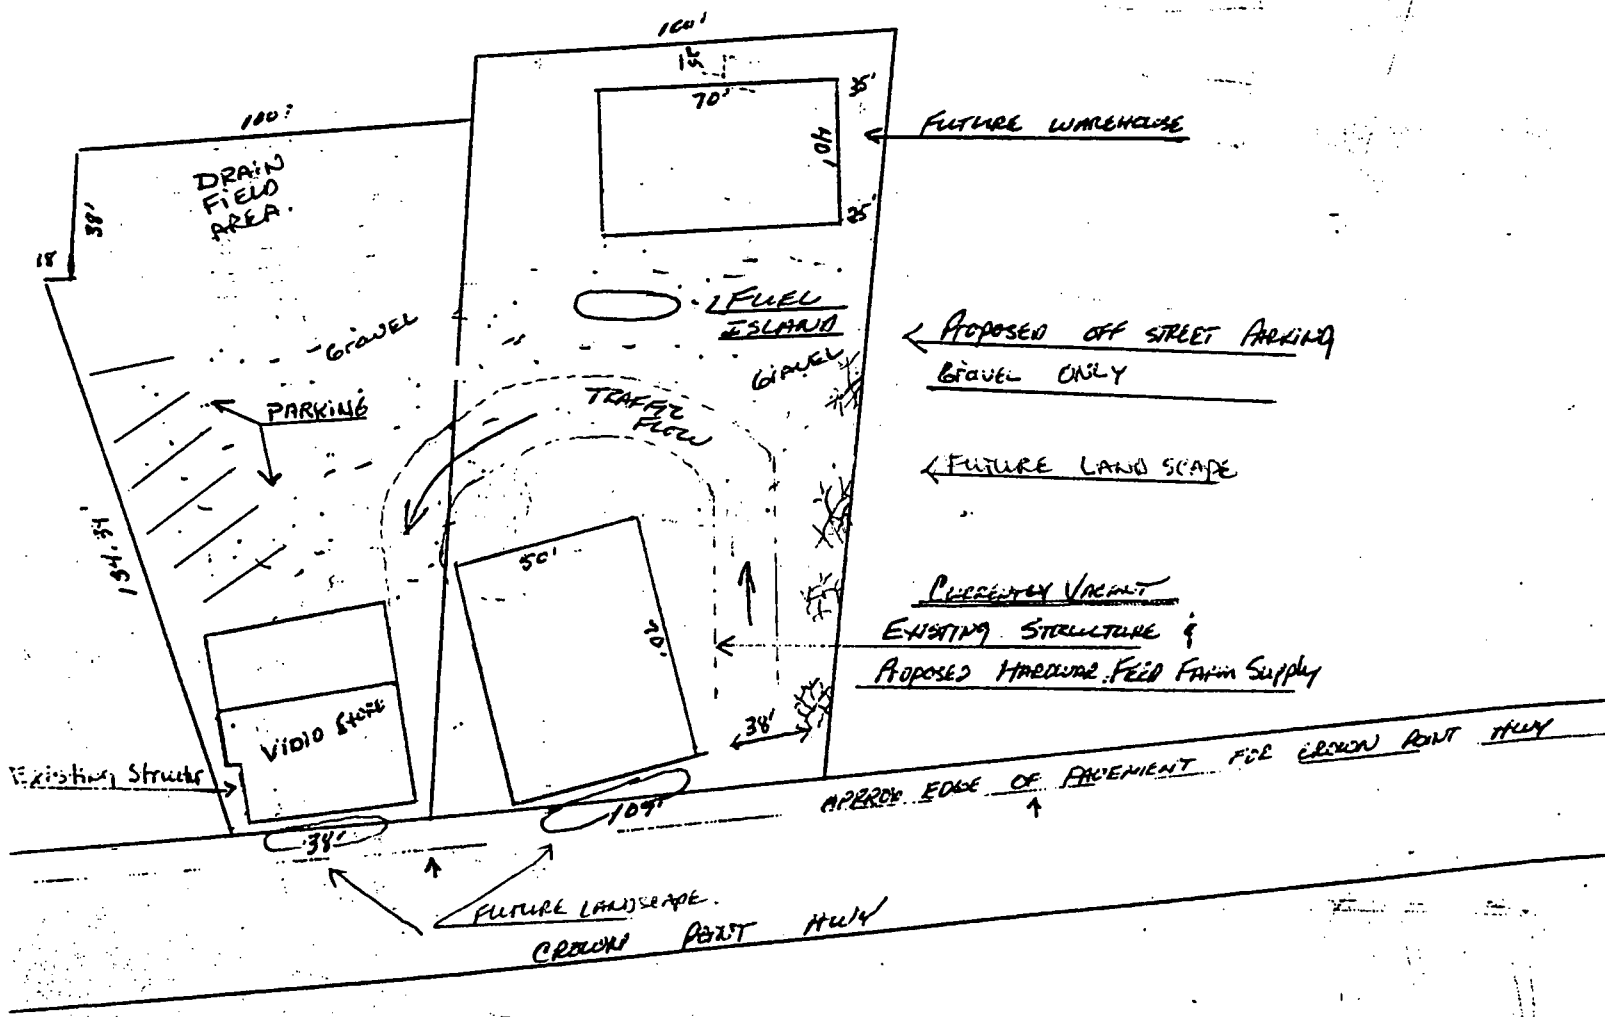 160'
15'
70'
35'
40'
25'
FUTURE WAREHOUSE
100'
DRAIN
FIELD
AREA.
38'
18
FUEL
ISLAND
GRAVEL
GRAVEL
PROPOSED OFF STREET PARKING
GRAVEL ONLY
PARKING
TRAFFIC
FLOW
FUTURE LAND SCAPE
184.34'
50'
70'
CURRENTLY VACANT
EXISTING STRUCTURE &
PROPOSED HARDWAR. FEED FARM SUPPLY
VIDIO STORE
38'
Existing Structr
APPROX EDGE OF PAVEMENT FOR CROWN POINT HWY
38'
109'
FUTURE LANDSCAPE.
CROWN POINT HWY